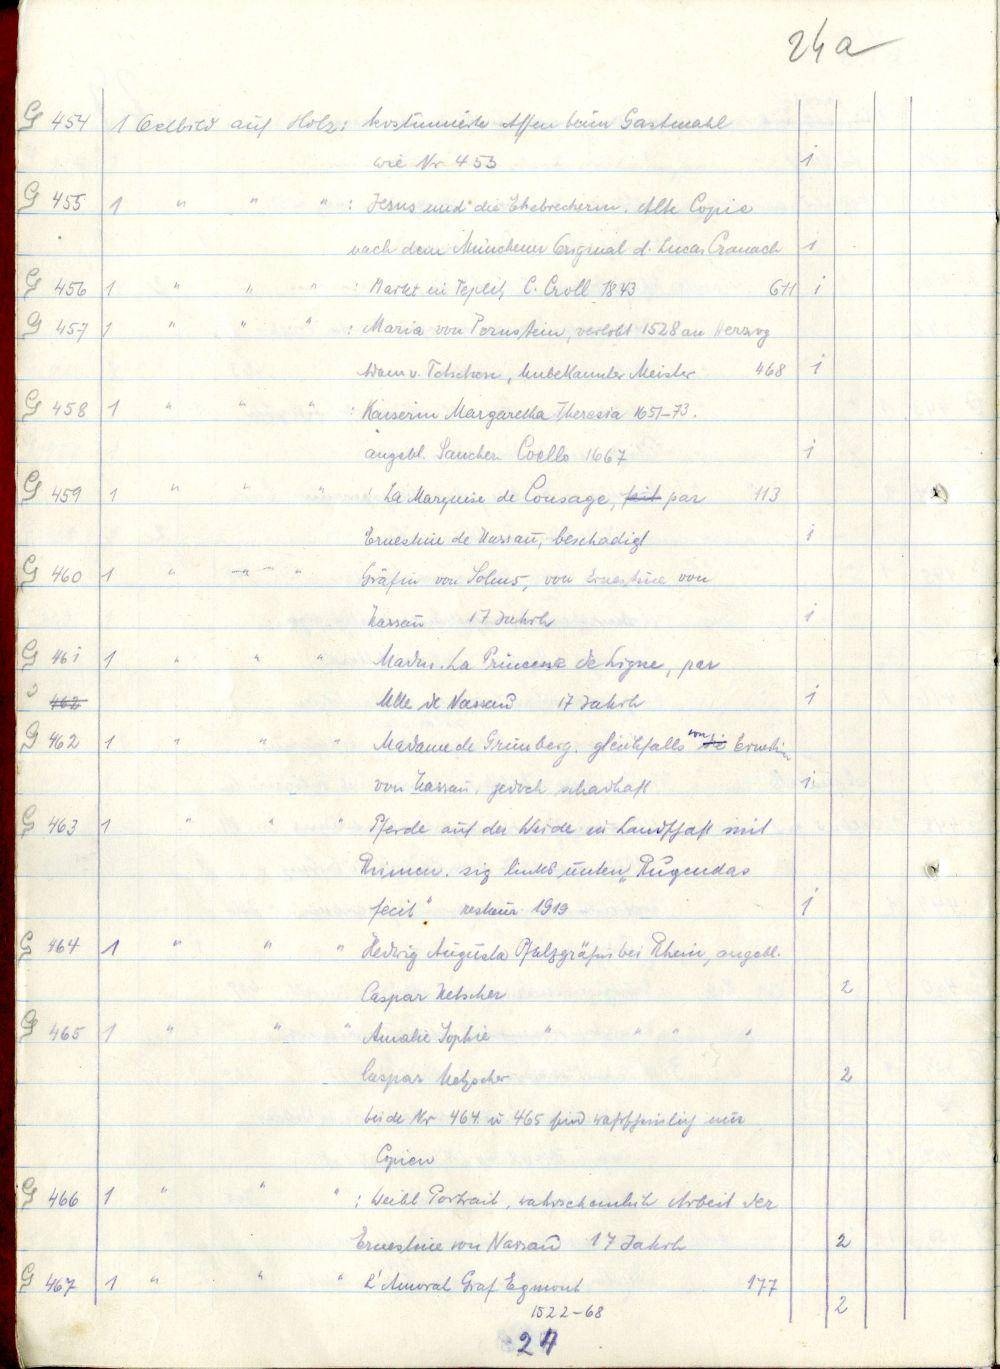 24 a
G 454 1 Oelbild auf Holz: kostümierte Affen beim Gastmahl
wie Nr 453 1
G 455 1 " " " : Jesus und die Ehebrecherin. Alte Copie
nach dem Münchener Original d. Lucas Cranach 1
G 456 1 " " " : Markt in Teplitz C. Croll 1843 611 1
G 457 1 " " " : Maria von Pernstein, verlobt 1528 an Herzog
Adam v. Tetschen, Unbekannter Meister 468 1
G 458 1 " " " : Kaiserin Margaretha Theresia 1651-73.
angebl. Sanchez Coello 1667 1
G 459 1 " " " : La Marquise de Cousage, par 113
Ernestine de Nassau, beschädigt 1
G 460 1 " " " Gräfin von Solms, von Ernestine von
Nassau 17 Jahrh 1
G 461 1 " " " Madm. La Princesse de Ligne, par
462 Mlle de Nassau 17 Jahrh 1
G 462 1 " " " Madame de Grünberg. gleichfalls von Ernestin
von Nassau, jedoch schadhaft 1
G 463 1 " " " Pferde auf der Weide in Landschaft mit
Ruinen. sig links unten „Rugendas
fecit" restaur 1919 1
G 464 1 " " " Hedwig Augusta Pfalzgräfin bei Rhein, angebl.
Caspar Netscher 2
G 465 1 " " " Amalie Sophie " " " "
Caspar Netzscher 2
beide Nr 464 u 465 sind wahrscheinlich nur
Copien
G 466 1 " " " : Weibl Portrait, wahrscheinlich Arbeit der
Ernestine von Nassau 17 Jahrh 2
G 467 1 " " " L'Amoral Graf Egmont 177
1522-68 2
24